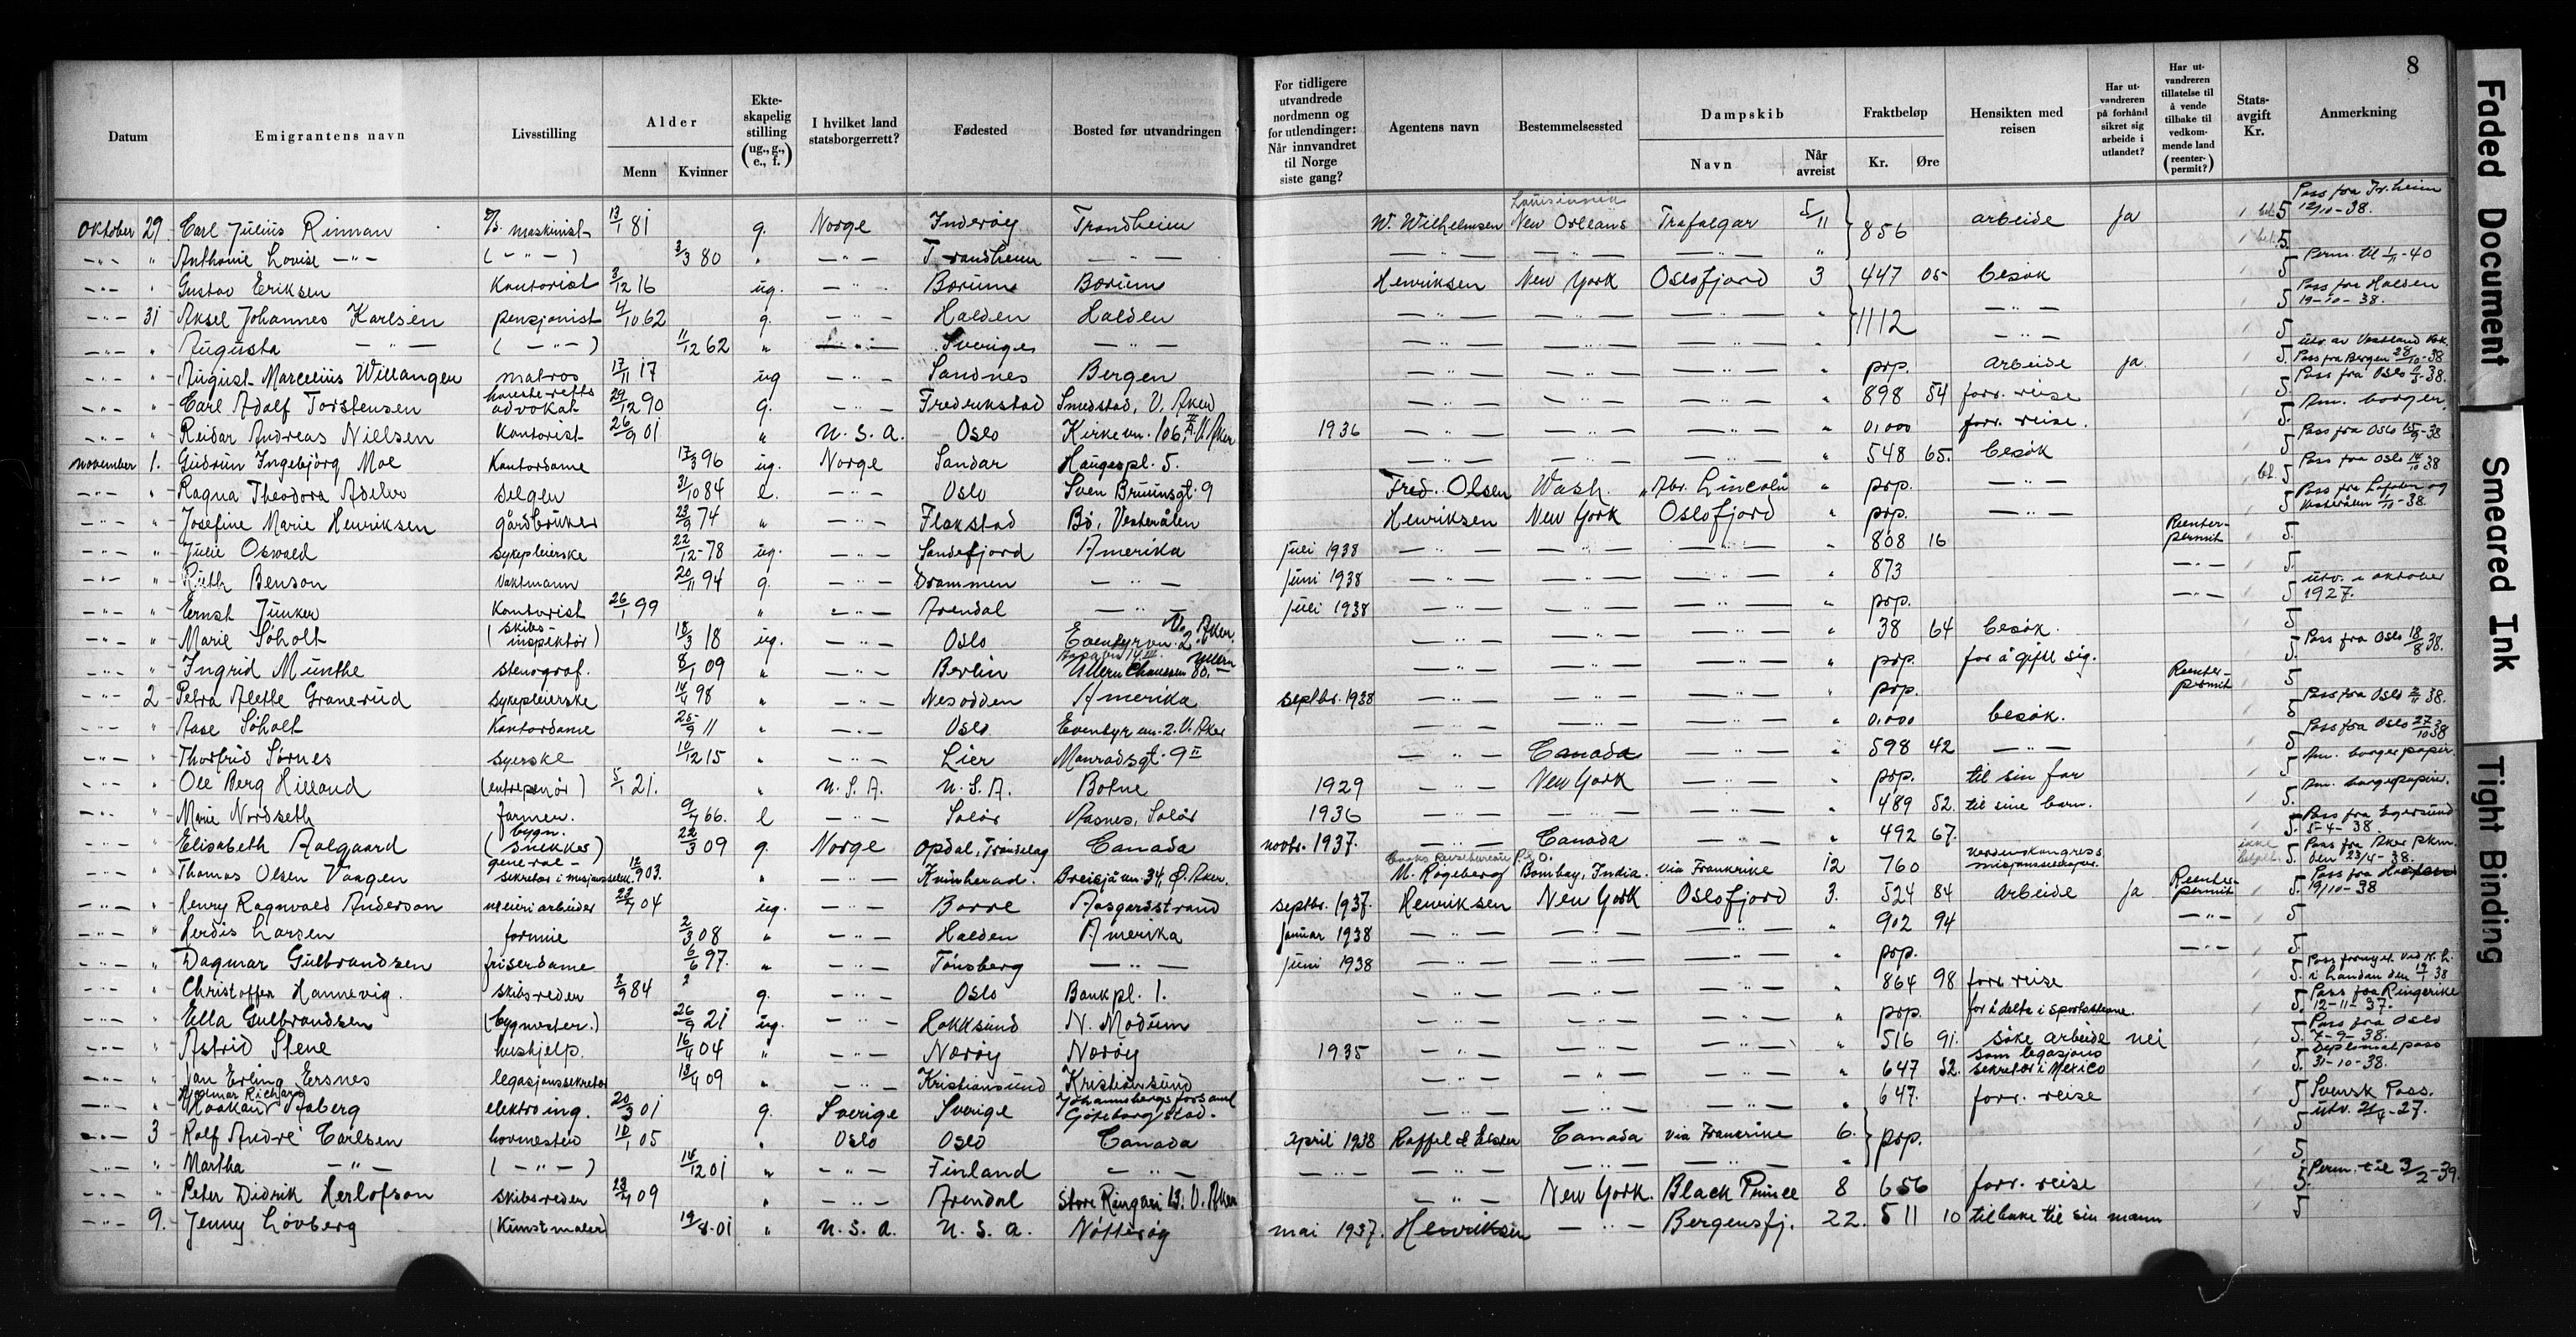 8
Datum | Emigrantens navn | Livsstilling | Alder Menn Kvinner | Ekteskapelig stilling (ug., g., e., f.) | I hvilket land statsborgerrett? | Fødested | Bosted før utvandringen | For tidligere utvandrede nordmenn og for utlendinger: Når innvandret til Norge siste gang? | Agentens navn | Bestemmelsessted | Dampskib Navn Når avreist | Fraktbeløp Kr. Øre | Hensikten med reisen | Har utvandreren på forhånd sikret sig arbeide i utlandet? | Har utvandreren tillatelse til å vende tilbake til vedkommende land (reenterpermit?) | Statsavgift Kr. | Anmerkning
Oktober 29 Carl Julius Rinnan maskinist 13/1 81 g. Norge Inderøy Trondheim W. Wilhelmsen New Orleans Trafalgar 5/11 856 arbeide Ja 5 Pass fra Tr.heim 12/10-38.
-"- " Anthonie Lovise -"- (-"-) 3/3 80 " -"- Trondheim -"- -"- -"- -"- " 5.
-"- " Gustav Eriksen Kontorist 3/12 16 ug. -"- Bærum Bærum Henriksen New York Oslofjord 3 447 05 besøk 5 Perm. til 1/11-40
-"- 31 Aksel Johannes Karlsen pensjonist 4/10 62 g. -"- Halden Halden -"- -"- -"- " 1112 -"- 5 Pass fra Halden 19-10-38.
-"- " Augusta -"- (-"-) 11/12 62 " -"- Sverige -"- -"- -"- -"- " -"- 5
-"- " August Marcelius Willangen matros 17/11 17 ug -"- Sandnes Bergen -"- -"- -"- " pp. arbeide Ja. 5. Pass fra Bergen 28/10-38
-"- " Carl Adolf Torstensen høiesteretts advokat 29/12 90 g. -"- Fredrikstad Smedstad, V. Aker -"- -"- -"- " 898 54 forr. reise 5. Pass fra Oslo 38.
-"- " Reidar Andreas Nielsen Kontorist 26/9 01 " U.S.A. Oslo Kirkevn. 106, V. Aker 1936 -"- -"- -"- " 0,000 forr. reise. 5. Am. borger.
november 1. Gudrun Ingebjørg Moe Kontordame 17/3 96 ug. Norge Sandar Haugespl. 5. -"- -"- -"- " 548 65. besøk 5 Pass fra Oslo 15/9-38
-"- " Ragna Theodora Adelvo selgen 31/10 84 e. -"- Oslo Sven Bruunsgt. 9 Fred. Olsen Wash. "Abr. Lincoln " pp. -"- 5 Pass fra Oslo 14/10 38
-"- " Josefine Marie Henriksen gårdbruker 23/9 74 " -"- Flakstad Bø, Vesterålen Henriksen New York Oslofjord " pp. -"- 5 Pass fra Lofoten og Vesterålen 1/10-38.
-"- " Julie Oswald sykepleierske 22/12-78 ug. -"- Sandefjord Amerika juli 1938 -"- -"- -"- " 808 16 Reenter-permit 5.
-"- " Ruth Benson Vaktmann 20/11 94 g. -"- Drammen -"- juni 1938 -"- -"- -"- " 873 -"- 5.
-"- " Ernst Junker Kontorist 26/1 99 " -"- Arendal -"- juli 1938 -"- -"- -"- " pp. -"- 5 utv. i oktober 1927.
-"- " Marie Søholt (skibs-inspektør) 18/3 18 ug. -"- Oslo Eventyrvn. 2. V. Aker. -"- -"- -"- " 38 64 besøk. 5
-"- " Ingrid Munthe stenograf. 8/1 09 " -"- Berlin Ullern Chausseen 60. -"- -"- -"- " pp. for å gifte sig. 5. Pass fra Oslo 18/8 38.
-"- 2 Petra Alette Granerud sykepleierske 14/4 98 " -"- Nesodden Amerika septbr. 1938 -"- -"- -"- " pp. Reenter-permit 5
-"- " Aase Søholt Kontordame 25/9 11 " -"- Oslo Eventyrvn. 2. V. Aker -"- -"- -"- " 0,000 besøk. 5 Pass fra Oslo 2/11 38.
-"- " Thorfrid Sørnes syerske 10/12 15 " -"- Lier Monradsgt. 9 II -"- Canada -"- " 598 42 -"- 5 Pass fra Oslo 27/10 38
-"- " Ole Berg Hilland (entreprenør) 5/1 21. " U.S.A. U.S.A. Botne 1929 New York -"- " pp. til sin far 5 Am. borgerpapir.
-"- " Marie Nordseth farmer. 9/7 66. e -"- Solør Aasnes, Solør 1936 -"- -"- -"- " 489 52. til sine barn. 5. Am. borgerpapir.
-"- " Elisabeth Aalgaard (bygn. snekker) 22/3 09 g. Norge Opdal, Trøndelag Canada novbr. 1937. -"- Canada -"- " 492 67. 5. Pass fra Egersund 5-4-38.
-"- " Thomas Olsen Vaagen general-sekretær i misjonsselsk. 12/9 03. " -"- Kvinherad. Breisjåvn. 34, Ø. Aker. M. Rogeberg Bombay, India. Via Frankrike 12 760 ikke betalt 5. Pass fra Aker pkm. den 23/4-38.
-"- " Henry Ragnvald Anderson meieriarbeider 04 ug. -"- Borre Aasgårdstrand septbr. 1937. Henriksen New York Oslofjord 3. 524 84 arbeide Ja Reenter-permit 5. 19/10-38
-"- " Herdis Larsen 2/3 08 " -"- Halden Amerika Januar 1938 -"- -"- -"- " 902 94 -"- 5
-"- " Dagmar Gulbrandsen friserdame 6/6 97. " -"- Tønsberg -"- Juni 1938 -"- -"- -"- pp. -"- 5.
-"- " Christoffer Hannevig. skibsreder 2/9 84 g. -"- Oslo Bankpl. 1. -"- -"- -"- " 864 98 forr. reise 5. Pass fornyet ved i London den 38
-"- " Ella Gulbrandsen (bygmester.) 26/9 21 ug. -"- Hokksund N. Modum -"- -"- -"- " pp. for å delta i 5. Pass fra Ringerike 12-11-37.
-"- " Astrid Stene hushjelp. 16/4 04 " -"- Norøy Norøy 1935 -"- -"- -"- " 516 91. søke arbeide nei 5. Pass fra Oslo 7-9-38.
-"- " Jan Erling Ersnes legasjonssekretær 13/4 09 " -"- Kristiansund Kristiansund -"- -"- -"- " 647 52. som legasjons sekretær i Mexico 5. Diplomatpass 31-10-38.
-"- " Hjalmar Richard Haakan Aaberg elektroing. 20/3 01 g. Sverige Sverige Johannebergs forsaml Göteborg stad. -"- -"- -"- 647. forr. reise 5 Svensk Pass.
-"- 3 Rolf André Carlsen hovmester 18/1 05 " Oslo Oslo Canada April 1938 Raffel & Canada via Frankrike 6. pp. 5 utv. 21/4-27.
-"- " Martha -"- (-"-) 14/12 01 " -"- Finland -"- -"- -"- -"- -"- " 5
-"- " Peter Didrik Herlofson skibsreder 09 " -"- Arendal Store Ringvei 13. V. Aker -"- New York. Black Prince 8 656 forr. reise 5. Perm. til 3/2-39.
-"- 9. Jenny Løvberg (Kunstmaler) 19/8.01 " U.S.A. U.S.A. Nøtterøy mai 1937. Henriksen -"- Bergensfj. 22. 511 10 tilbake til sin mann 5
Faded Document
Smeared Ink
Tight Binding